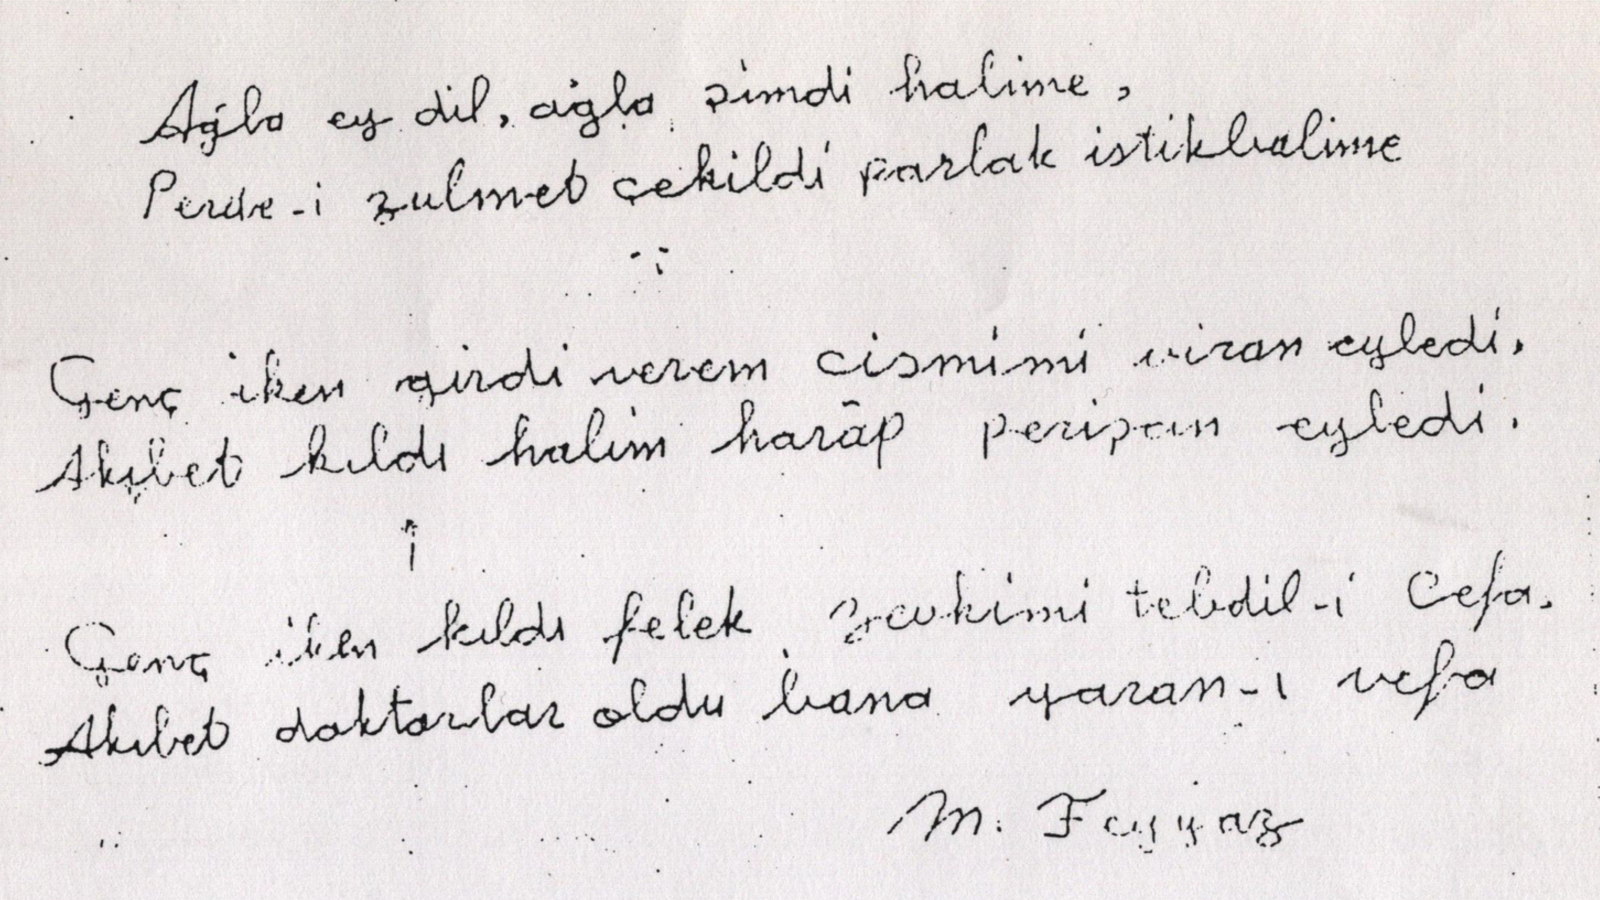 Ağla ey dil, ağla şimdi halime,
Perde-i zulmet çekildi parlak istikbalime
Genç iken girdi verem cismimi viran eyledi,
Akıbet kıldı halim harâp perişan eyledi.
Genç iken kıldı felek zevkimi tebdil-i Cefa.
Akıbet doktorlar oldu bana yaran-ı vefa
M. Feyyaz